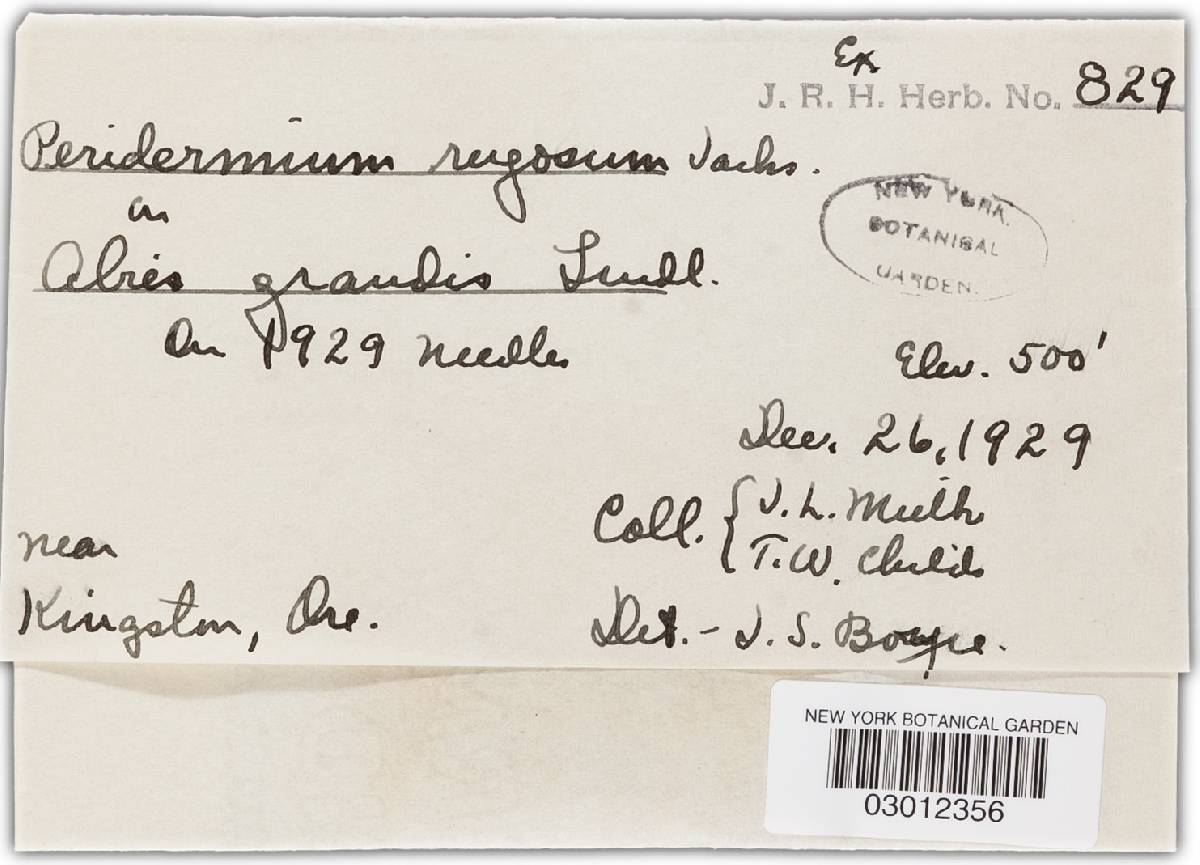 Ex
J. R. H. Herb. No. 829
Peridermium rugosum Jacks.
on
Abies grandis Lindl.
On 1929 needles
NEW YORK
BOTANICAL
GARDEN.
Elev. 500'
Dec. 26, 1929
Coll. { J. L. Mielke
T. W. Childs
near
Kingston, Ore.
Det. - J. S. Boyce.
NEW YORK BOTANICAL GARDEN
03012356